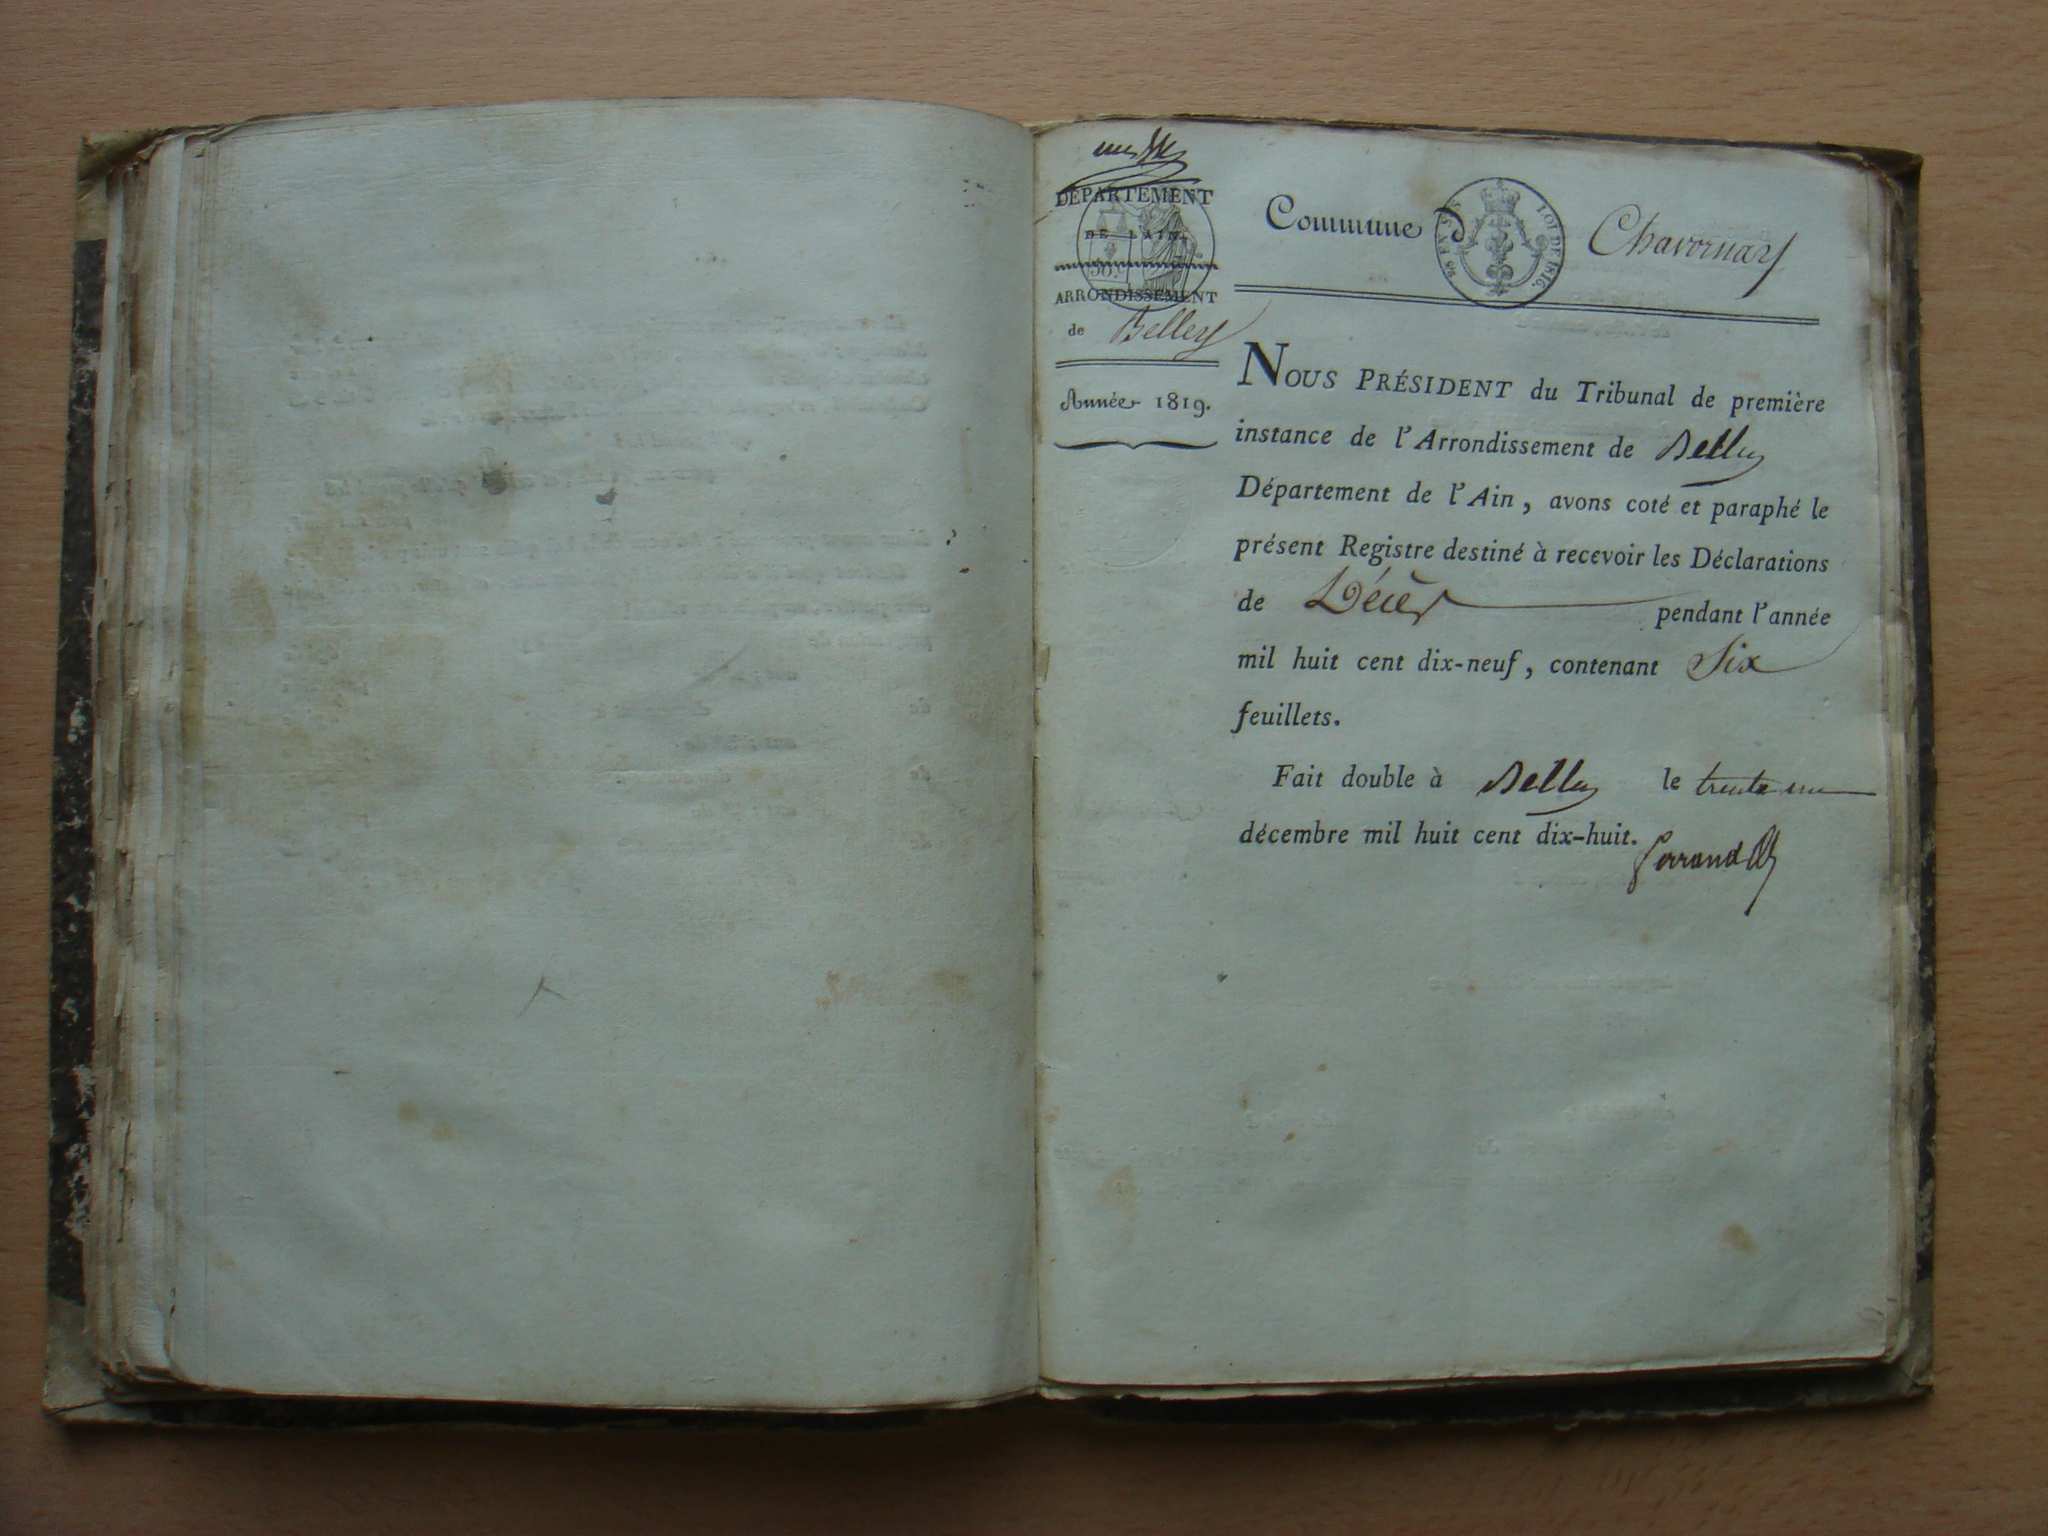 DÉPARTEMENT
DE L'AIN.
ARRONDISSEMENT
de Belley
Année 1819.
Commune d Chavornay
LOI DE 1816.
NOUS PRÉSIDENT du Tribunal de première
instance de l'Arrondissement de Belley
Département de l'Ain, avons coté et paraphé le
présent Registre destiné à recevoir les Déclarations
de Décès pendant l'année
mil huit cent dix-neuf, contenant Six
feuillets.
Fait double à Belley le trente un
décembre mil huit cent dix-huit.